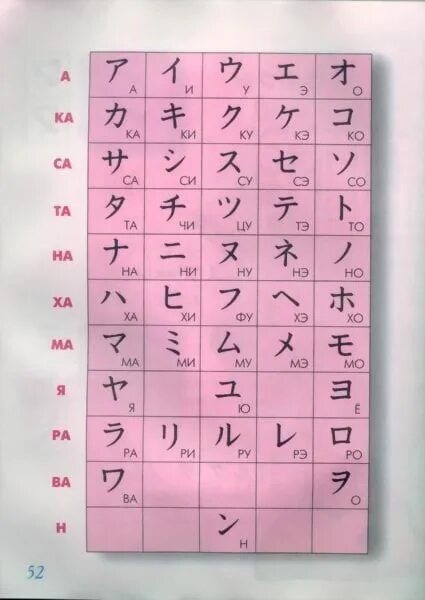 А ア А イ И ウ У エ Э オ О
КА カ КА キ КИ ク КУ ケ КЭ コ КО
СА サ СА シ СИ ス СУ セ СЭ ソ СО
ТА タ ТА チ ЧИ ツ ЦУ テ ТЭ ト ТО
НА ナ НА ニ НИ ヌ НУ ネ НЭ ノ НО
ХА ハ ХА ヒ ХИ フ ФУ ヘ ХЭ ホ ХО
МА マ МА ミ МИ ム МУ メ МЭ モ МО
Я ヤ Я ユ Ю ヨ Ё
РА ラ РА リ РИ ル РУ レ РЭ ロ РО
ВА ワ ВА ヲ О
Н ン Н
52